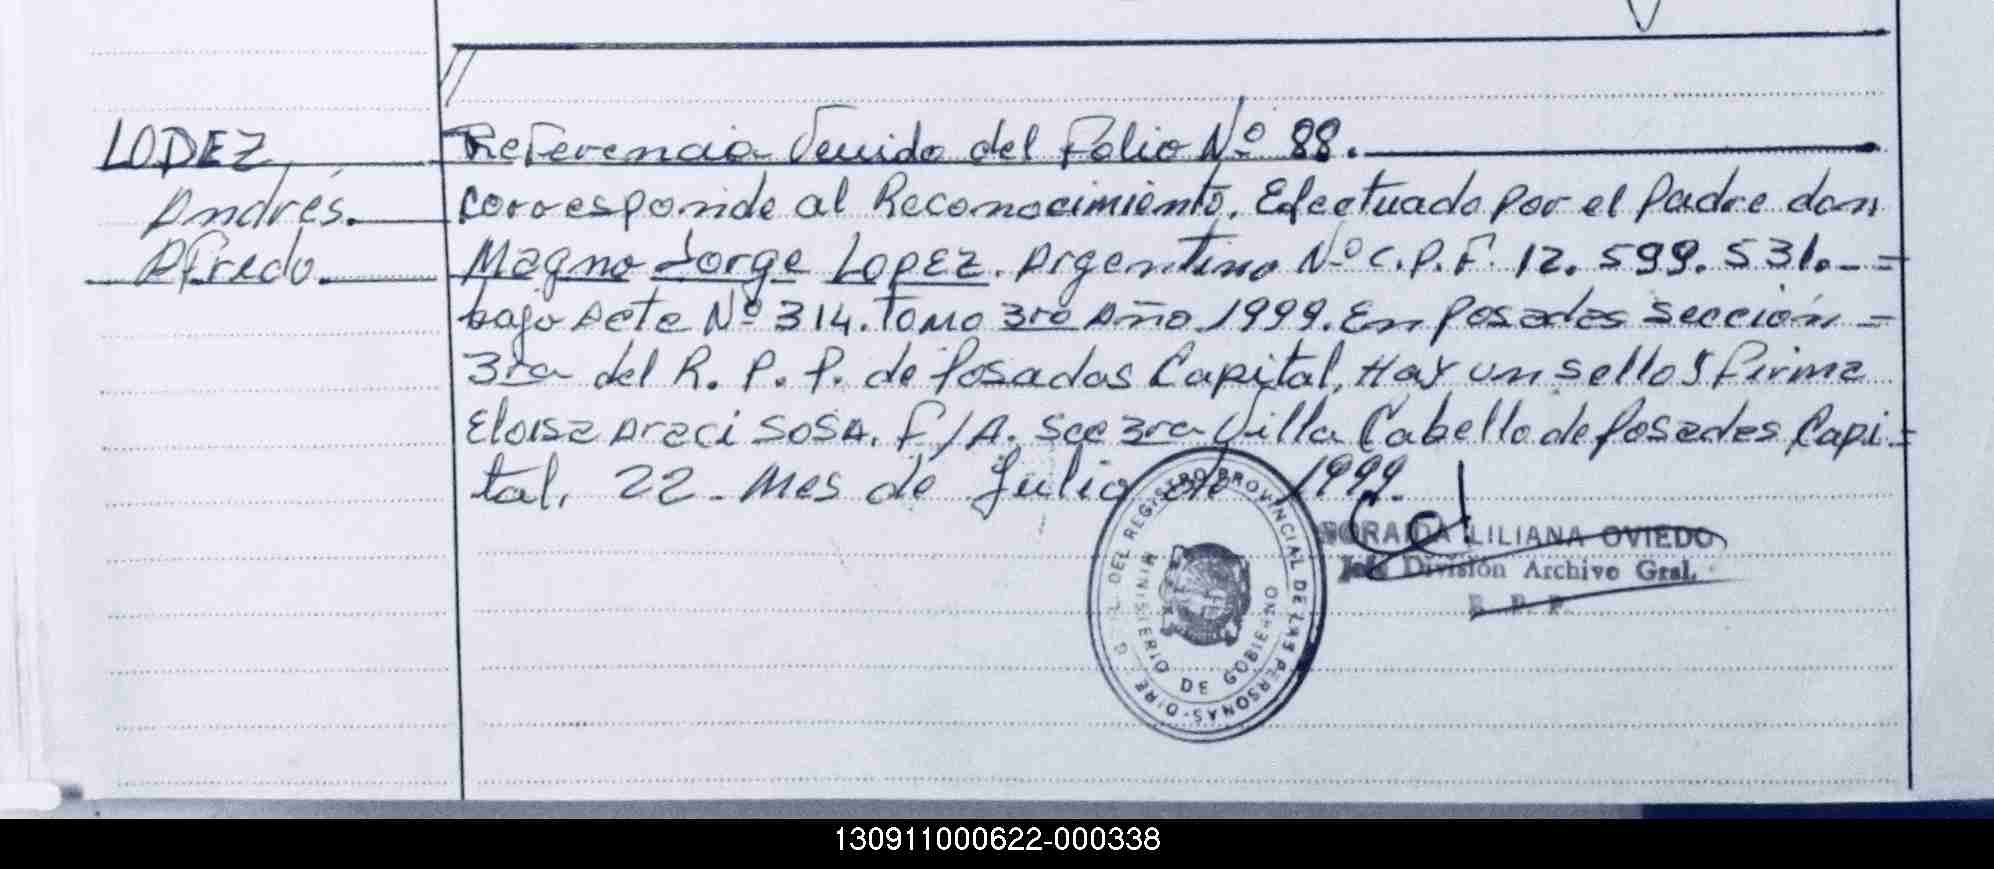 LOPEZ
Andrés.
Alfredo.
Referencia Venida del Folio Nº 88.
Corresponde al Reconocimiento. Efectuado por el Padre don
Magno Jorge LOPEZ. Argentino Nº C.P.F. 12.599.531.-=
bajo Acta Nº 314. Tomo 3ro Año 1999. En Posadas sección =
3ra del R. P. P. de Posadas Capital, Hay un sello y firma
Eloisa Araci SOSA. F/A. Scc 3ra Villa Cabello de Posadas Capi=
tal, 22 - Mes de Julio de 1999.
DEL REGISTRO PROVINCIAL DE LAS PERSONAS - DIRE
MINISTERIO DE GOBIERNO
SORAIDA LILIANA OVIEDO
Jefe División Archivo Gral.
R. P. P.
130911000622-000338